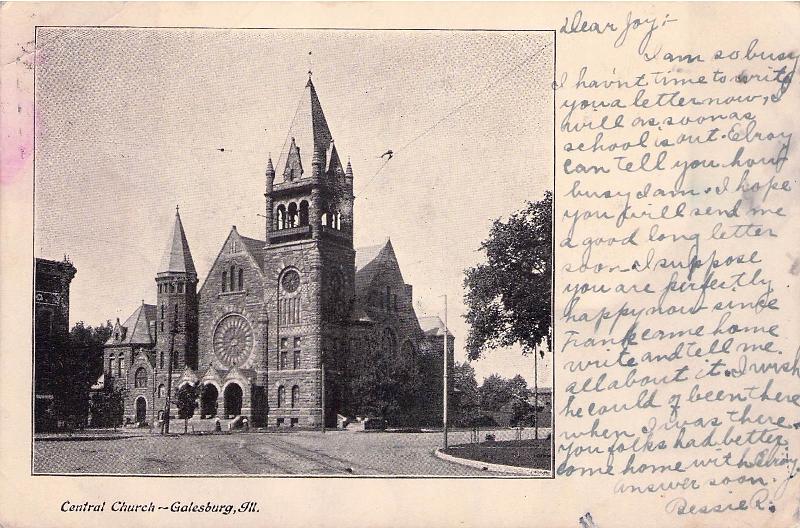 Dear Joy:-
I am so busy
I hav'nt time to write
you a letter now, I
will as soon as
school is out. Elroy
can tell you how
busy I am. I hope
you will send me
a good long letter
soon. I suppose
you are perfectly
happy now since
Frank came home
write and tell me.
all about it. I wish
he could of been there
when I was there.
you folks had better
come home with Elroy
answer soon.
Bessie R.
Central Church - Galesburg, Ill.